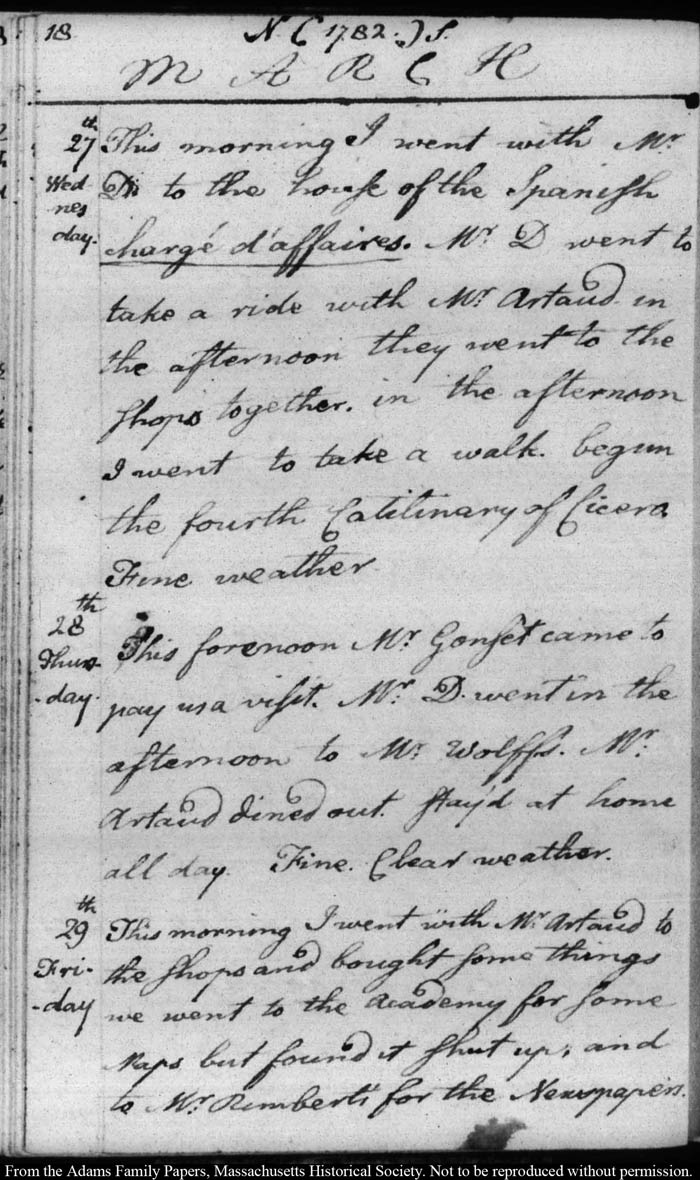 18 N (1782.) S.
M A R C H
27th Wednesday. This morning I went with Mr.
D. to the house of the Spanish
chargé d'affaires. Mr. D went to
take a ride with Mr. Artaud in
the afternoon they went to the
shops together. in the afternoon
I went to take a walk. begun
the fourth Catilinary of Cicero.
Fine weather
28th Thursday. This forenoon Mr. Gonset came to
pay us a visit. Mr. D. went in the
afternoon to Mr. Wolffs. Mr.
Artaud dined out. stay'd at home
all day. Fine. Clear weather.
29th Friday This morning I went with Mr. Artaud to
the shops and bought some things
we went to the Academy for some
Maps but found it shut up, and
to Mr. Rimberti for the Newspapers.
From the Adams Family Papers, Massachusetts Historical Society. Not to be reproduced without permission.